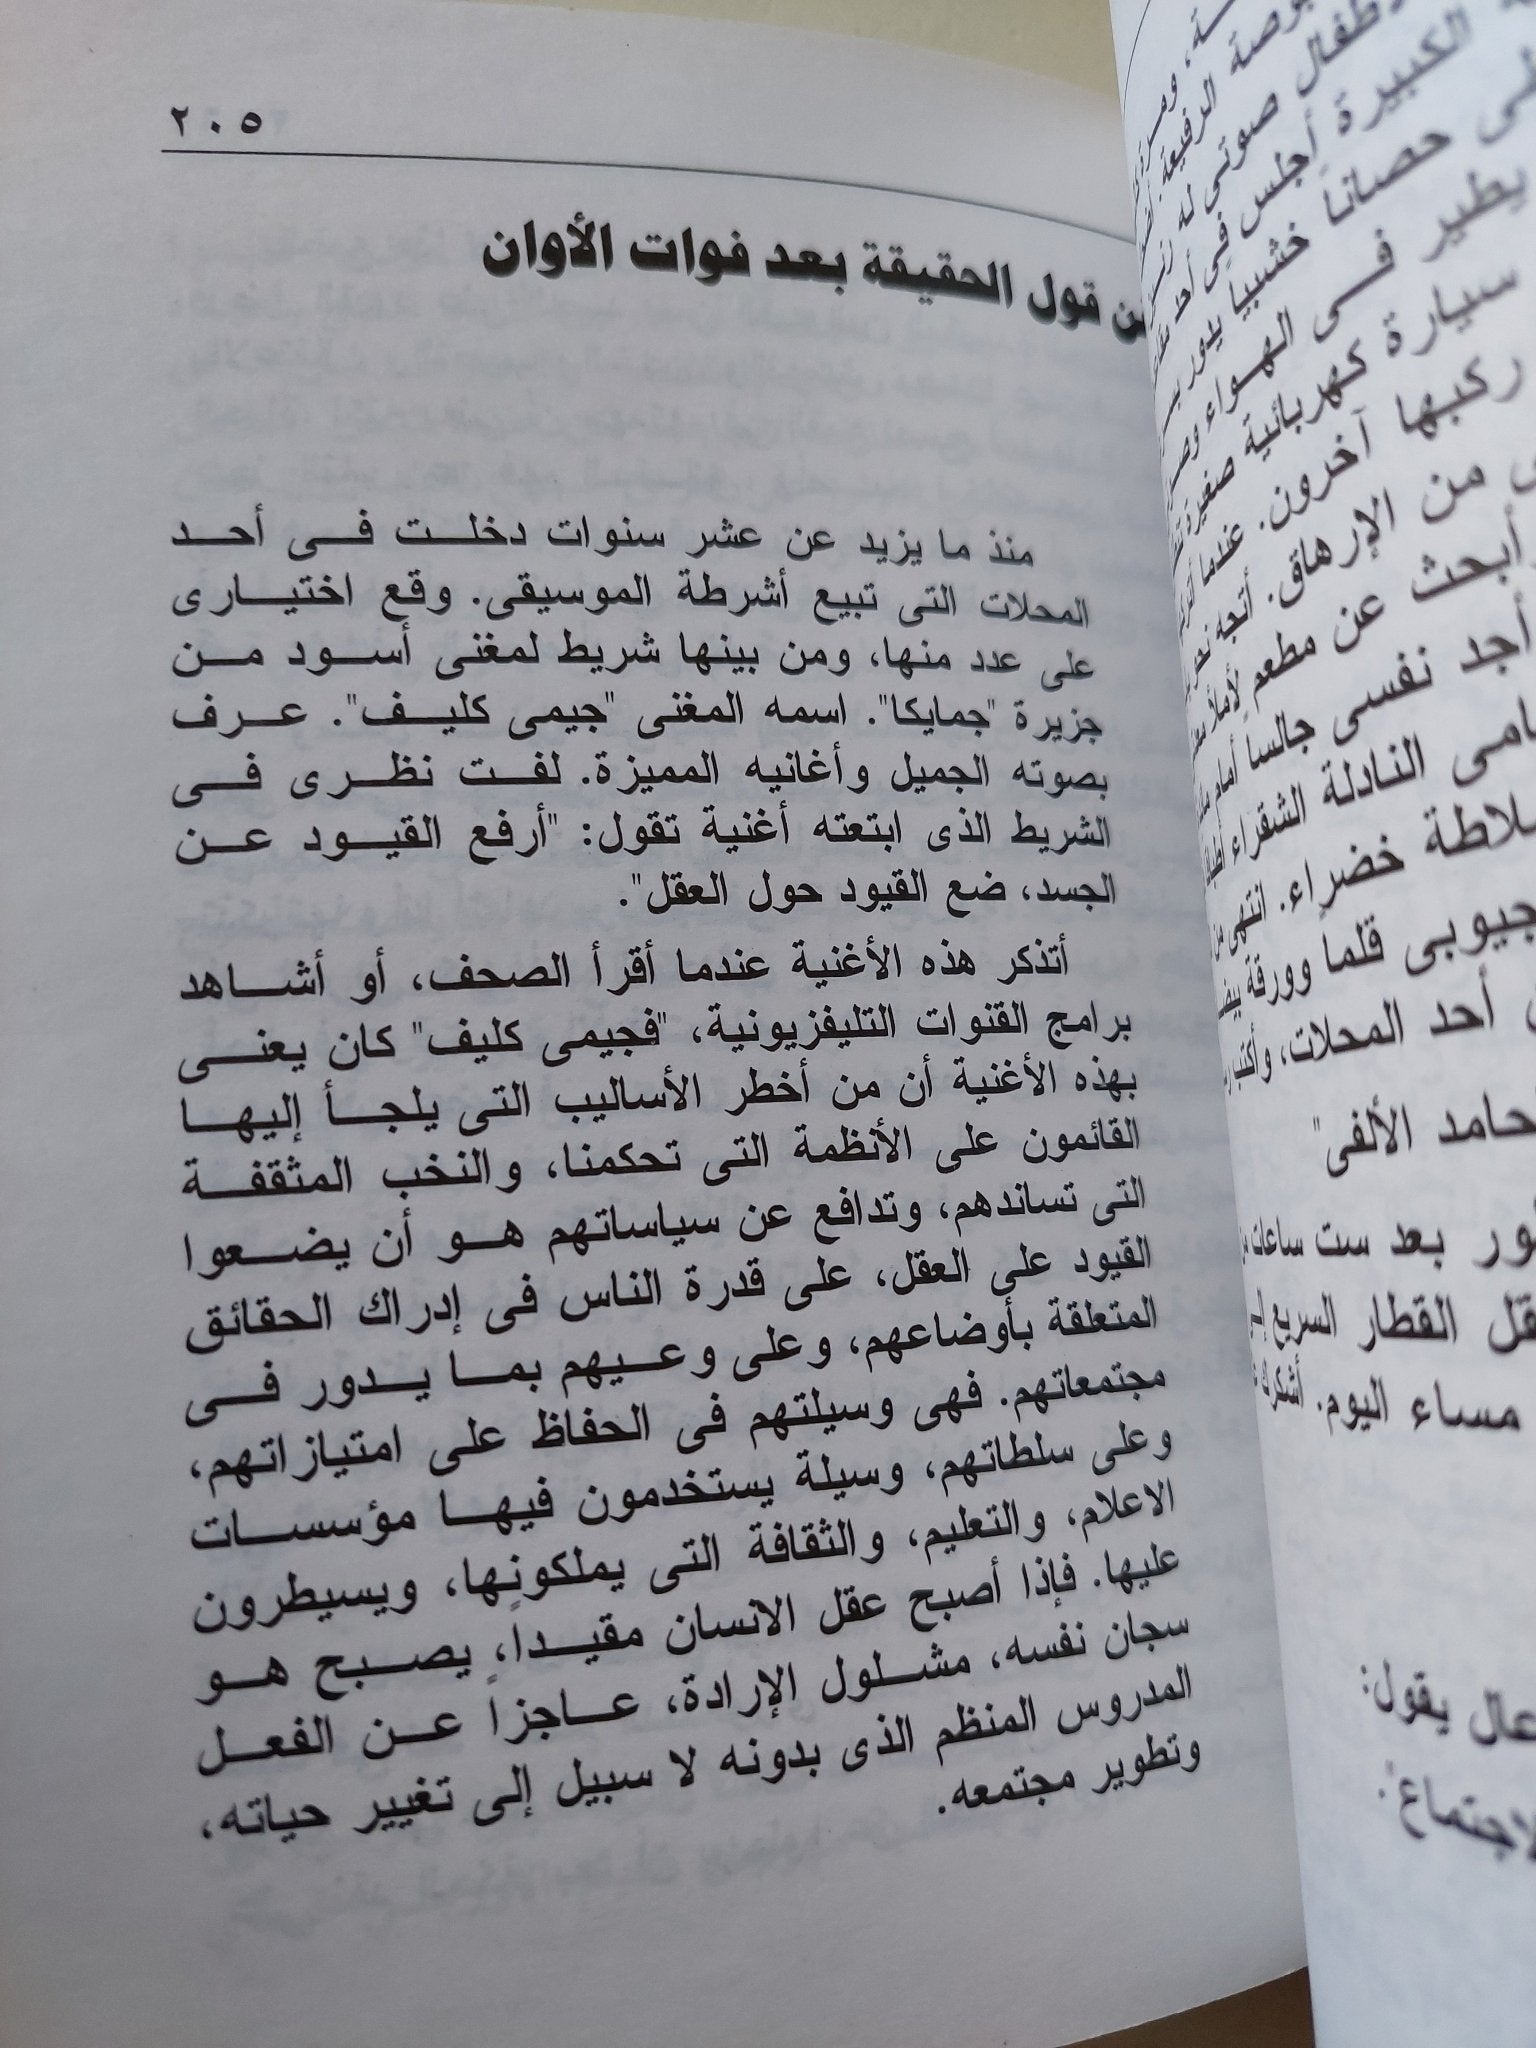 ٢٠٥
قول الحقيقة بعد فوات الأوان
منذ ما يزيد عن عشر سنوات دخلت فى أحد
المحلات التى تبيع أشرطة الموسيقى. وقع اختيارى
على عدد منها، ومن بينها شريط لمغنى أسود من
جزيرة "جمايكا". اسمه المغنى "جيمى كليف". عرف
بصوته الجميل وأغانيه المميزة. لفت نظرى فى
الشريط الذى ابتعته أغنية تقول: "أرفع القيود عن
الجسد، ضع القيود حول العقل".
أتذكر هذه الأغنية عندما أقرأ الصحف، أو أشاهد
برامج القنوات التليفزيونية، "فجيمى كليف" كان يعنى
بهذه الأغنية أن من أخطر الأساليب التى يلجأ إليها
القائمون على الأنظمة التى تحكمنا، والنخب المثقفة
التى تساندهم، وتدافع عن سياساتهم هو أن يضعوا
القيود على العقل، على قدرة الناس فى إدراك الحقائق
المتعلقة بأوضاعهم، وعلى وعيهم بما يدور فى
مجتمعاتهم. فهى وسيلتهم فى الحفاظ على امتيازاتهم،
وعلى سلطاتهم، وسيلة يستخدمون فيها مؤسسات
الاعلام، والتعليم، والثقافة التى يملكونها، ويسيطرون
عليها. فإذا أصبح عقل الانسان مقيداً، يصبح هو
سجان نفسه، مشلول الإرادة، عاجزاً عن الفعل
المدروس المنظم الذى بدونه لا سبيل إلى تغيير حياته،
وتطوير مجتمعه.
الرفيعة.
أطفال صوتى له
الكبيرة أجلس فى أحد
حصاناً خشبياً يدور
يطير فى الهواء
سيارة كهربائية صغيرة
ركبها آخرون. عندما
من الإرهاق. أتجه
أبحث عن مطعم لأملأ
أجد نفسى جالساً أمام
النادلة الشقراء
خضراء. انتهى من
جيوبى قلما وورقة
أحد المحلات، وأكتب
حامد الألفى"
بعد ست ساعات
القطار السريع
مساء اليوم. أشكرك
يقول: